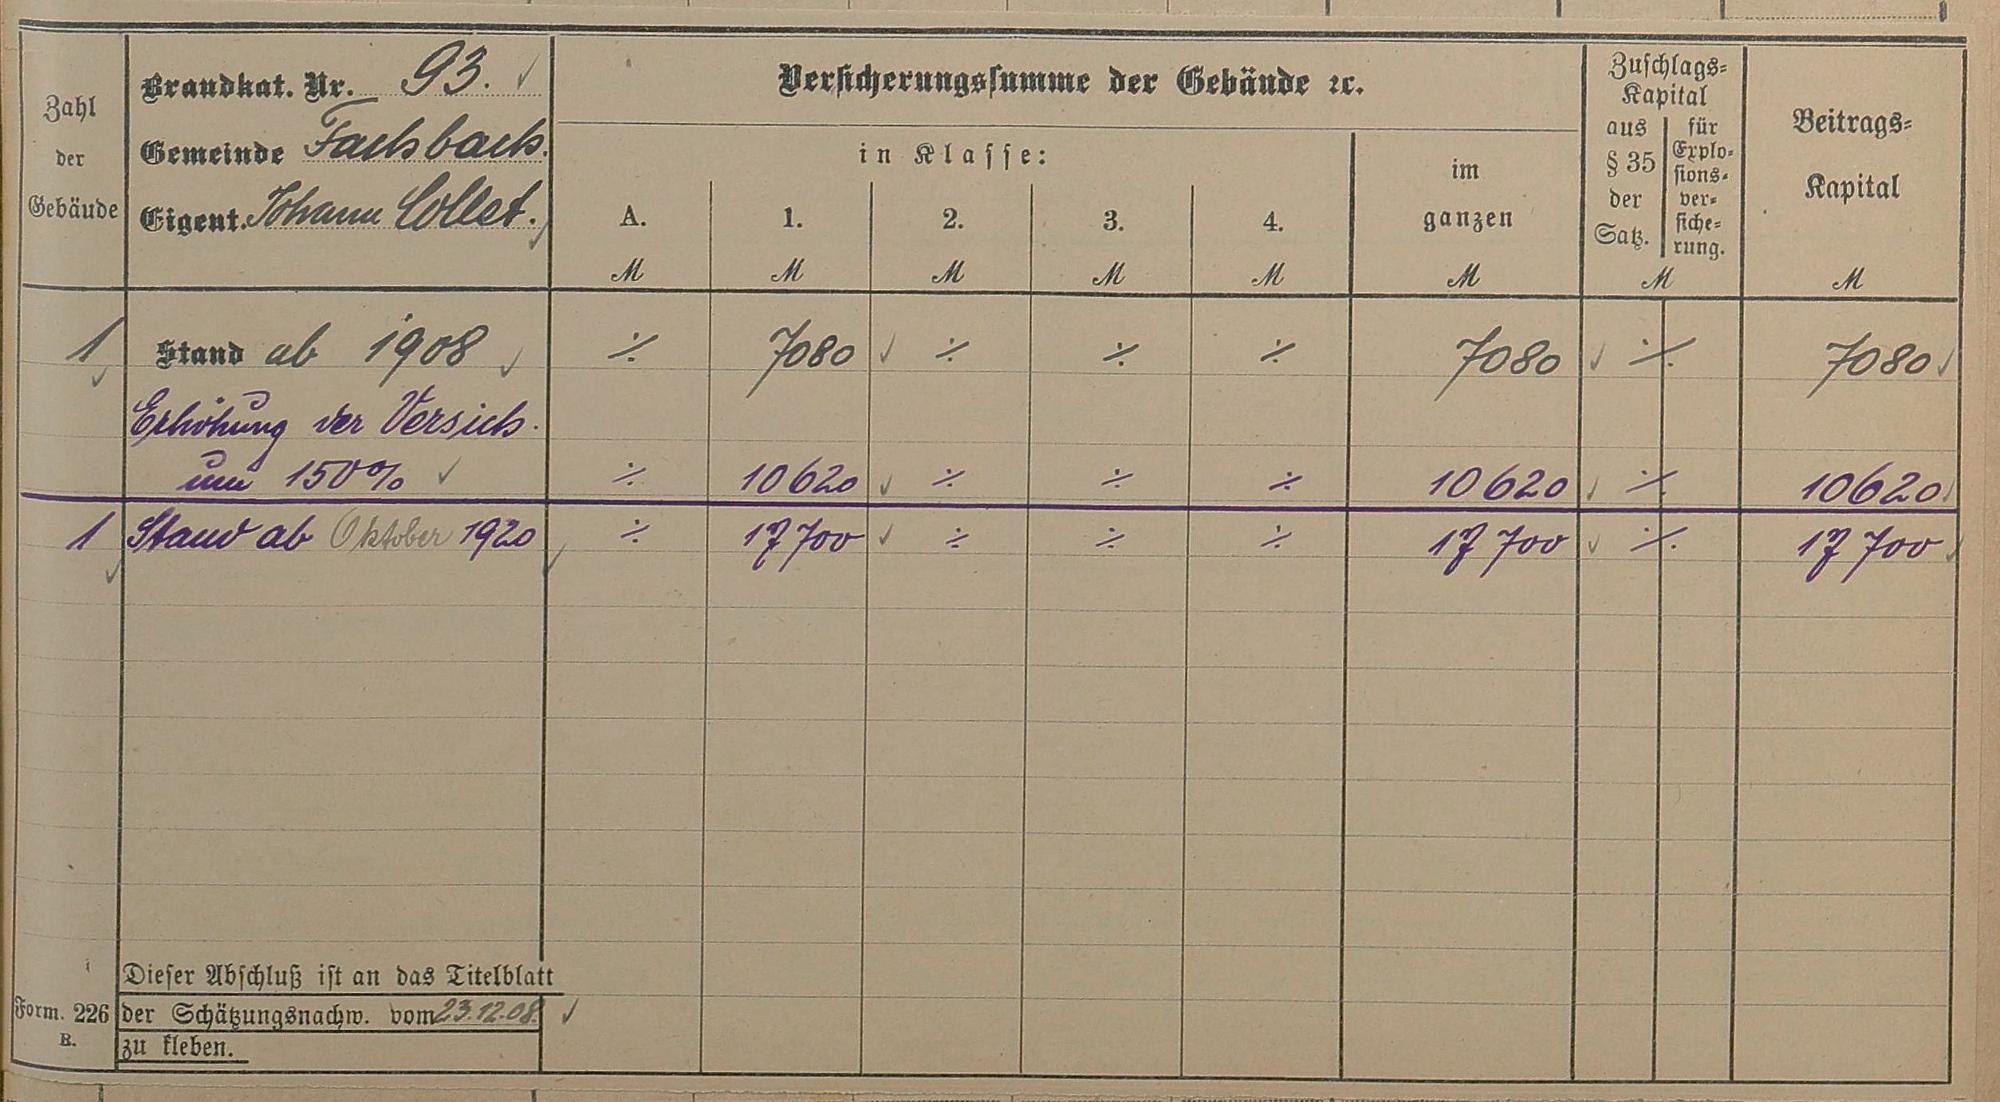 Zahl
der
Gebäude
Brandkat. Nr. 93.
Gemeinde Fachbach.
Eigent. Johann Collet.
Versicherungssumme der Gebäude ꝛc.
in Klasse:
A. 1. 2. 3. 4.
im
ganzen
M M M M M M
Zuschlags-
Kapital
aus
§ 35
der
Satz.
für
Explo-
sions-
ver-
siche-
rung.
M
Beitrags-
Kapital
M
1 Stand ab 1908 ⁒ 7080 ⁒ ⁒ ⁒ 7080 ⁒ 7080
Erhöhung der Versich.
um 150% ⁒ 10620 ⁒ ⁒ ⁒ 10620 ⁒ 10620
1 Stand ab Oktober 1920 ⁒ 17700 ⁒ ⁒ ⁒ 17700 ⁒ 17700
Dieser Abschluß ist an das Titelblatt
der Schätzungsnachw. vom 23.12.08.
zu kleben.
Form. 226
B.